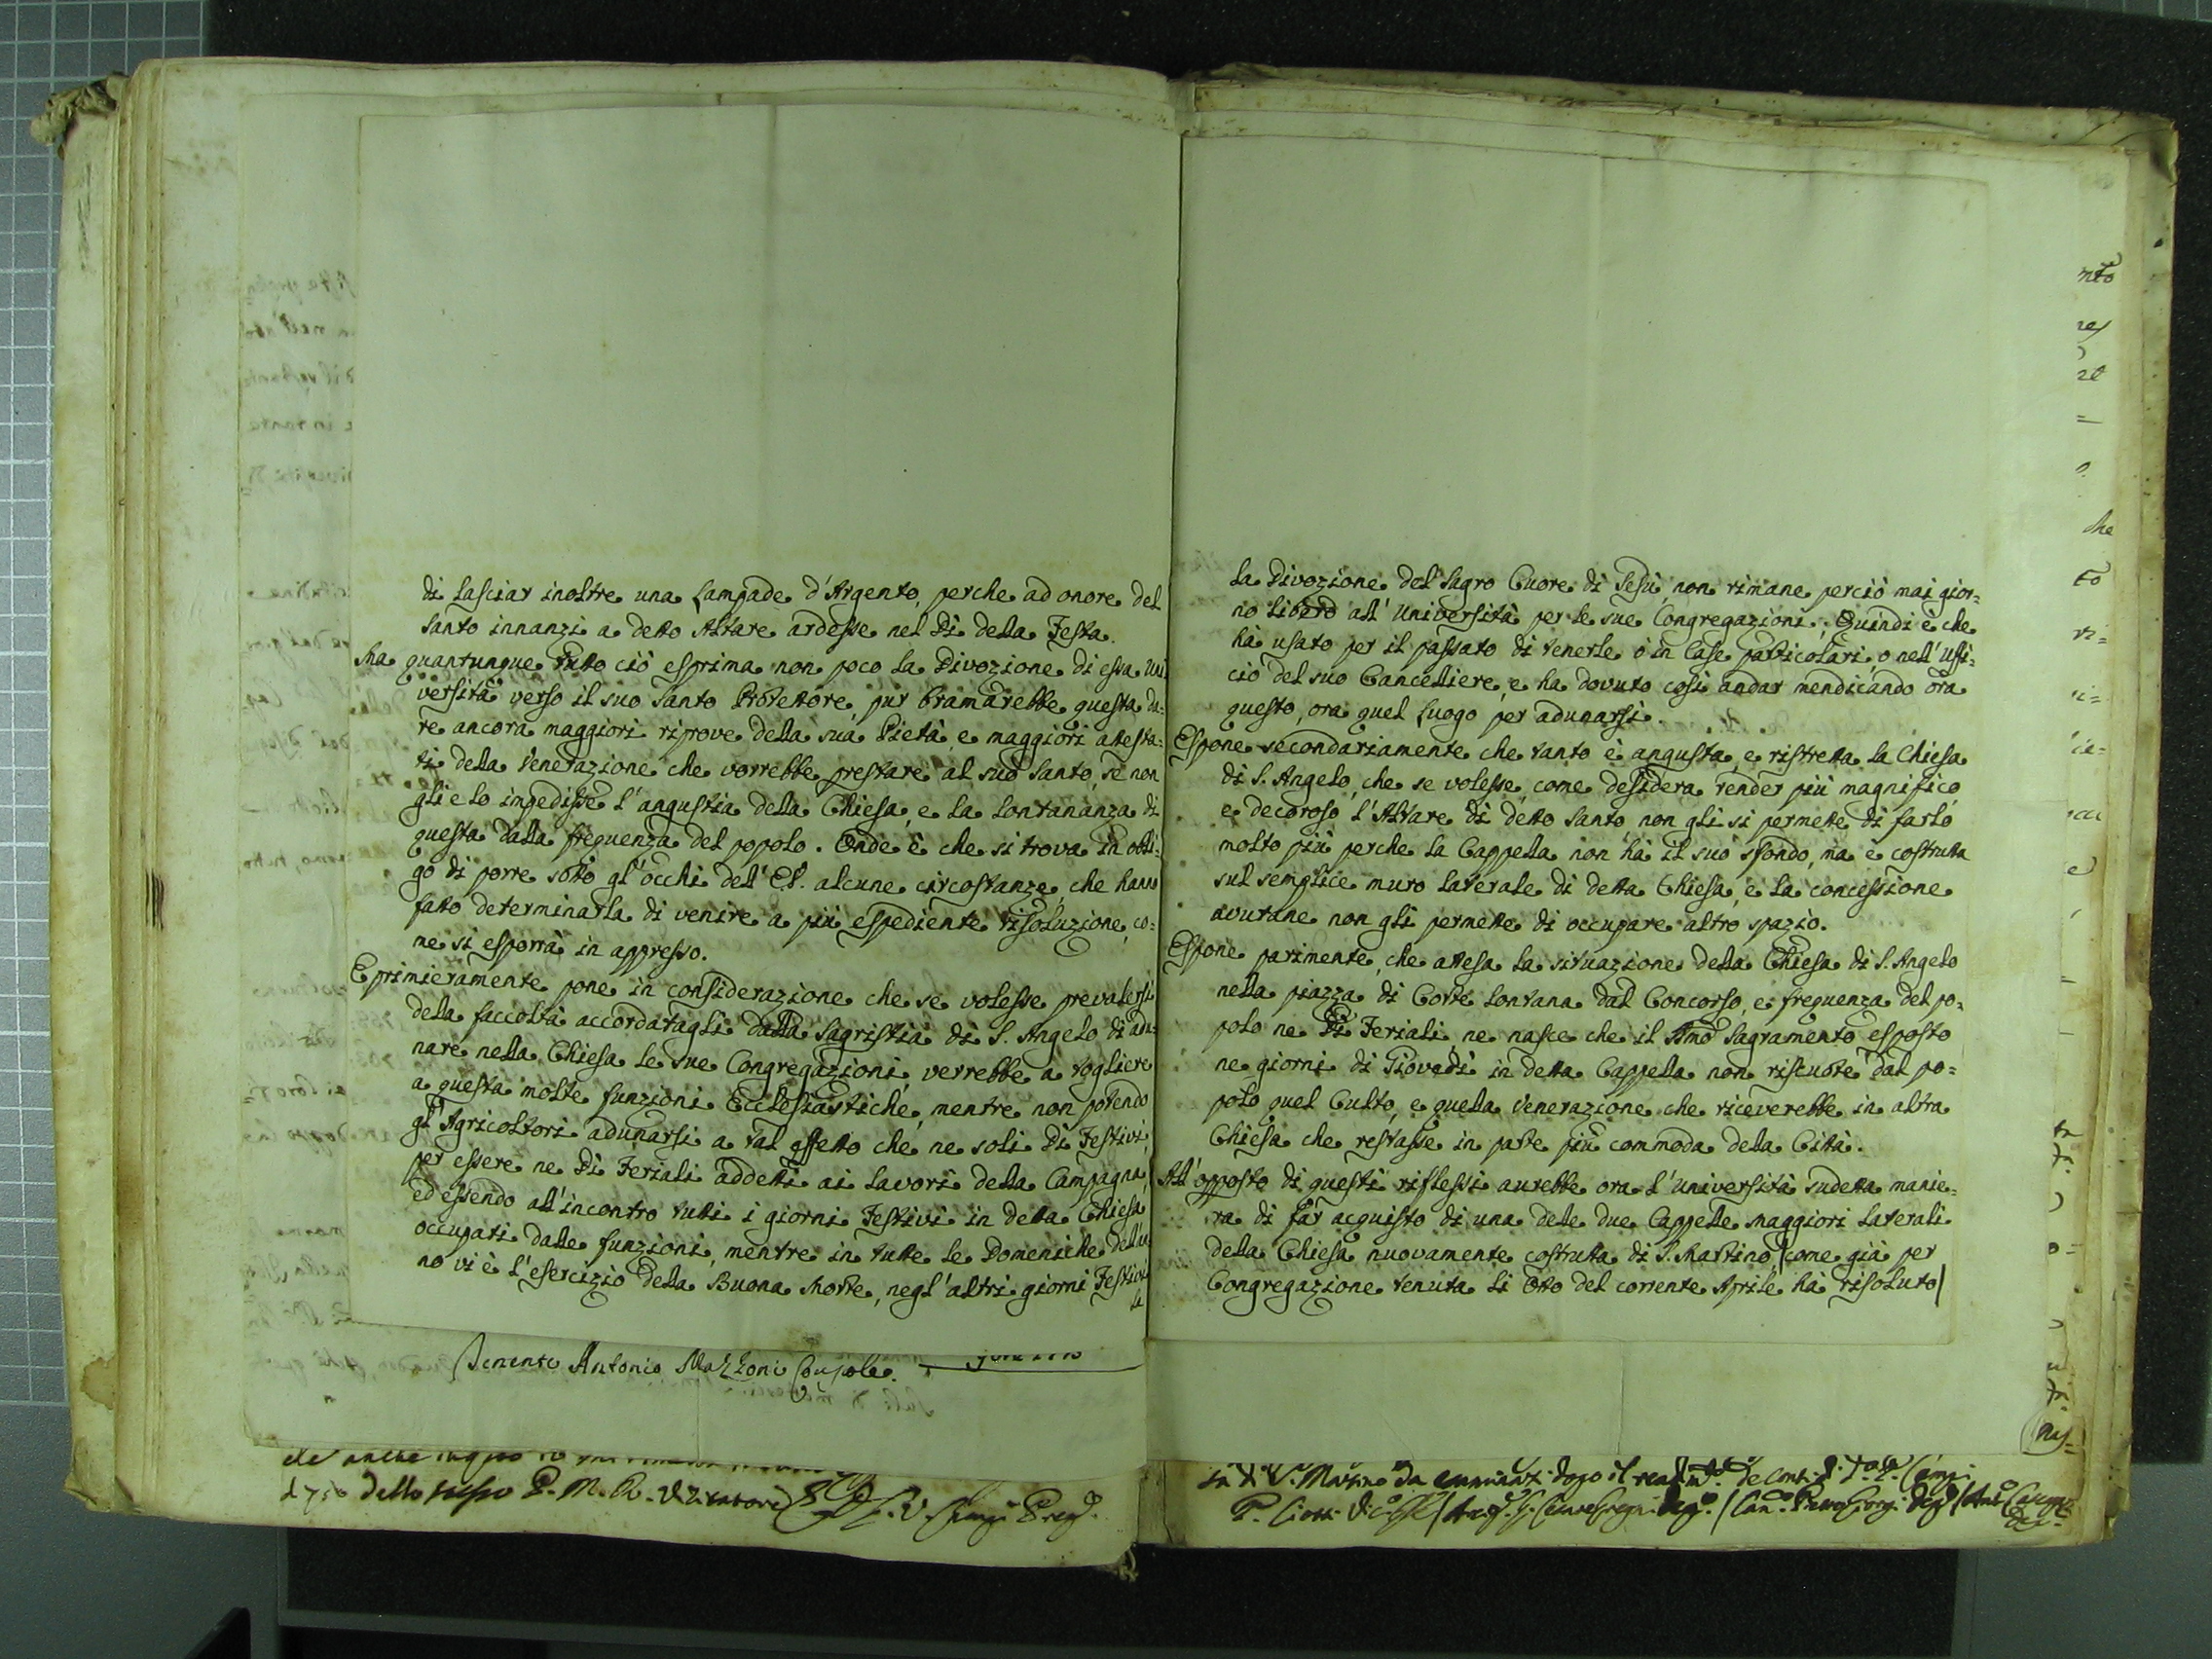 di lasciar inoltre una Lampade d'Argento, perche ad onore del
Santo innanzi a detto Altare ardesse nel Dì della Festa.
Ma quantunque tutto ciò esprima non poco la Divozione di essa Uni:
versità verso il suo Santo Protettore, pur bramarebbe questa da:
re ancora maggiori riprove della sua Pietà, e maggiori attesta:
ti della Venerazione che vorrebbe prestare al suo Santo, se non
gli e lo impedisse l'angustia della Chiesa, e la lontananza di
questa dalla frequenza del popolo. Onde è che si trova in obli:
go di porre sotto gl'occhi dell' alcune circostanze, che hanno
fatto determinarla di venire a più espediente risoluzione, co:
me si esporrà in appresso.
E primieramente pone in considerazione che se volesse prevalersi
della faccoltà accordatagli dalla Sagristia di S. Angelo di adu:
nare nella Chiesa le sue Congregazioni, verrebbe a togliere
a questa molte funzioni Ecclesiastiche, mentre non potendo
gl'Agricoltori adunarsi a tal effetto che ne soli Dì Festivi,
per essere ne Dì Feriali addetti ai lavori della Campagna,
ed essendo all'incontro tutti i giorni Festivi in detta Chiesa
occupati dalle funzioni, mentre in tutte le Domeniche dell'an
no vi è l'esercizio della Buona Morte, negl'altri giorni Festivi
la
Tenente Antonio Mazzoni Console.
dello stesso P. M. R. Visitatore
la Divozione del Sagro Cuore di Gesù, non rimane perciò mai gior:
no libero all'Università per le sue Congregazioni. Quindi è che
hà usato per il passato di tenerle ò in Case particolari, o nell'Uffi:
cio del suo Cancelliere, e ha dovuto così andar mendicando ora
questo, ora quel Luogo per adunarsi.
Espone secondariamente che tanto è angusta, e ristretta la Chiesa
di S. Angelo, che se volesse, come desidera render più magnifico,
e decoroso l'Altare di detto Santo, non gli si permette di farlo,
molto più perche la Cappella non hà il suo sfondo, ma è costrutta
sul semplice muro laterale di detta Chiesa, e la concessione
avutane non gli permette di occupare altro spazio.
Espone parimente, che attesa la situazione della Chiesa di S. Angelo
nella piazza di Corte lontana dal Concorso, e frequenza del po:
polo ne Dì Feriali, ne nasce che il Smo Sagramento esposto
ne giorni di Giovedì in detta Cappella non riscuote dal po:
polo quel Culto, e quella Venerazione che riceverebbe in altra
Chiesa che restasse in parte più commoda della Città.
All'opposto di questi riflessi aurebbe ora l'università sudetta manie:
ra di far acquisto di una delle due Cappelle maggiori laterali
della Chiesa nuovamente costrutta di S. Martino /come già per
Congregazione tenuta li Otto del corrente Aprile hà risoluto/